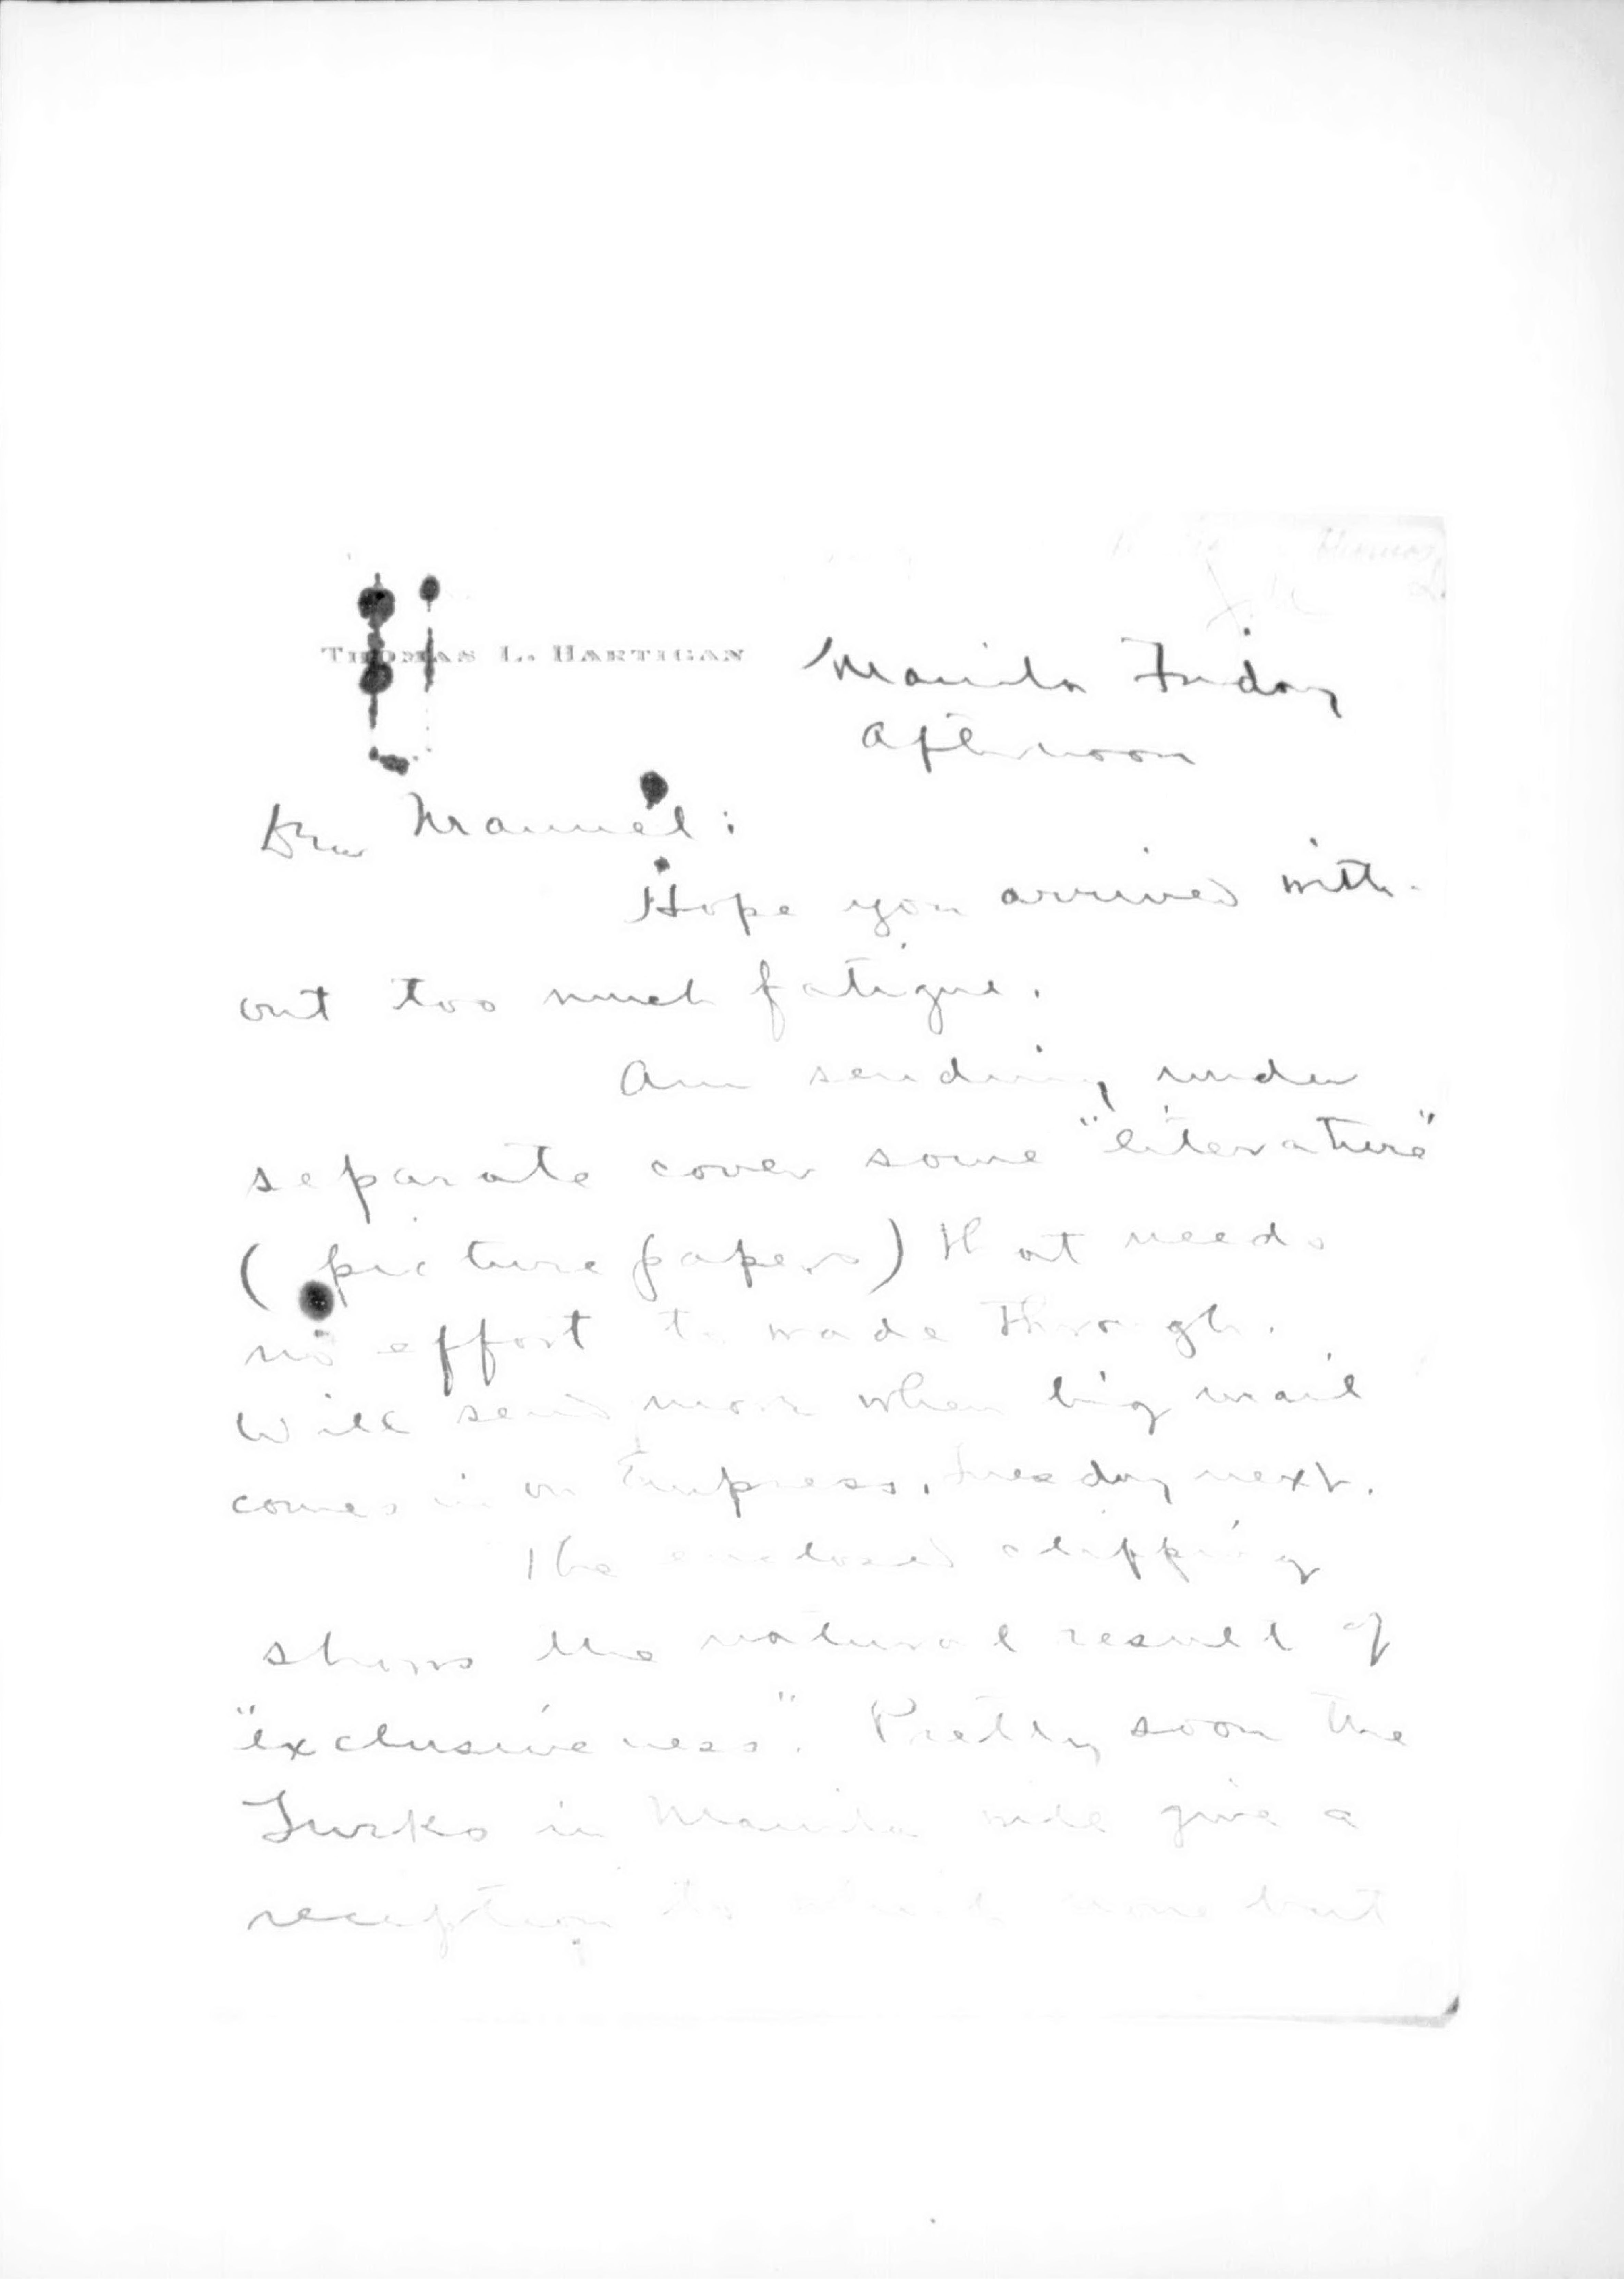 Thomas,
L.
THOMAS L. HARTIGAN
Manila Friday
Afternoon
Dear Manuel:
Hope you arrived with-
out too much fatigue.
Am sending under
separate cover some "literature"
(picture papers) that needs
no effort to wade through.
Will send more when big mail
comes in on Empress, Tuesday next.
The enclosed clipping
shows the natural result of
"exclusiveness". Pretty soon the
Turks in Manila will give a
reception to which none but